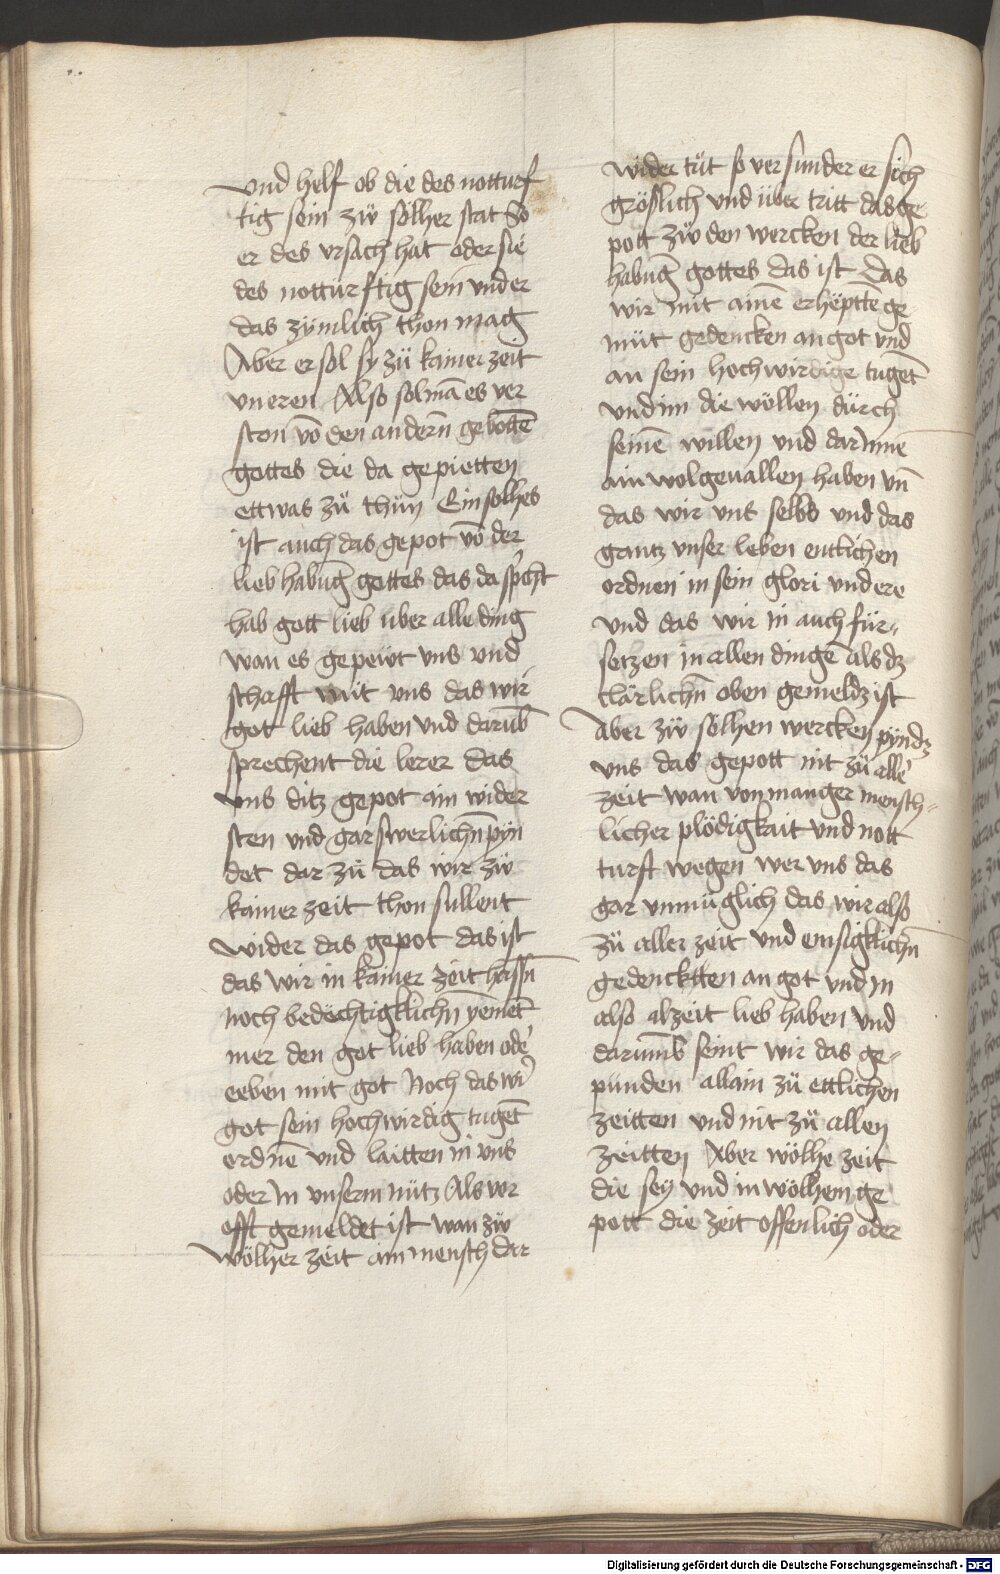 vnd helf ob die des notturf
tig sein zw̏ sölher stat So
er des vrsach hat oder sie
des notturftig sein vnd er
das zymlich thon mag
Aber er sol sy zü kainer zeit
vneren Also sol mā es ver
sten vō den andern̄ gebottē
gottes die da gepietten
ettwas zü thün Ein solhes
ist auch das gepot vō der
lieb habūg gottes das da spͥcht
hab gott lieb uber alle ding
wan es gepeẅt vns vnd
schafft mit vns das wir
got lieb haben vnd darūb
sprechent die lerer das
vns ditz gepot am wider
sten vnd gar swerlichn̄ pyn
det dar zü das wir zw̏
kainer zeit thon sullent
wider das gepot das ist
das wir in kainer zeit hassn̄
noch bedächtigklichn̄ yemēt
mer den got lieb haben odeͬ
eeben mit got Noch das wiͬ
got sein hochwirdig tugēt
ordnē vnd laitten in vns
oder in vnserm nütz Als vor
offt gemeldet ist wan zw̏
wölher zeit ain mensch dar
wider tüt so versunder er sich
gröslich vnd über tritt das ge
pott zw̏ den wercken der lieb
habūg gottes das ist das
wir mit ainē erhëpttē ge
müt gedencken an got vnd
an sein hochwirdige tugēt
vnd im die wöllen dürch
seinē willen vnd dar Inne
ain wolgeuallen haben vn̄
das wir vns selbs vnd das
gantz vnser leben entlichen
ordnen in sein glori vnd ere
vnd das wir in auch für-
setzen in allen dingē als dz
clärlichn̄ oben gemeldz ist
Aber zw̏ sölhen wercken pyndz
vns das gepott nit zü alleͬ
zeit wan von manger mensch-
licher plödigkait vnd nott
turft wegen wer vns das
gar vnmüglich das wir also
zü aller zeit vnd emsigklichn̄
gedencktten an got vnd in
also alzeit lieb haben vnd
darumb seint wir das ge-
pünden allain zü ettlichen
zeitten vnd nit zü allen
zeitten Aber wölhe zeit
die sey vnd in wölhem ge
pott die zeit offenlich oder
Digitalisierung gefördert durch die Deutsche Forschungsgemeinschaft - DFG